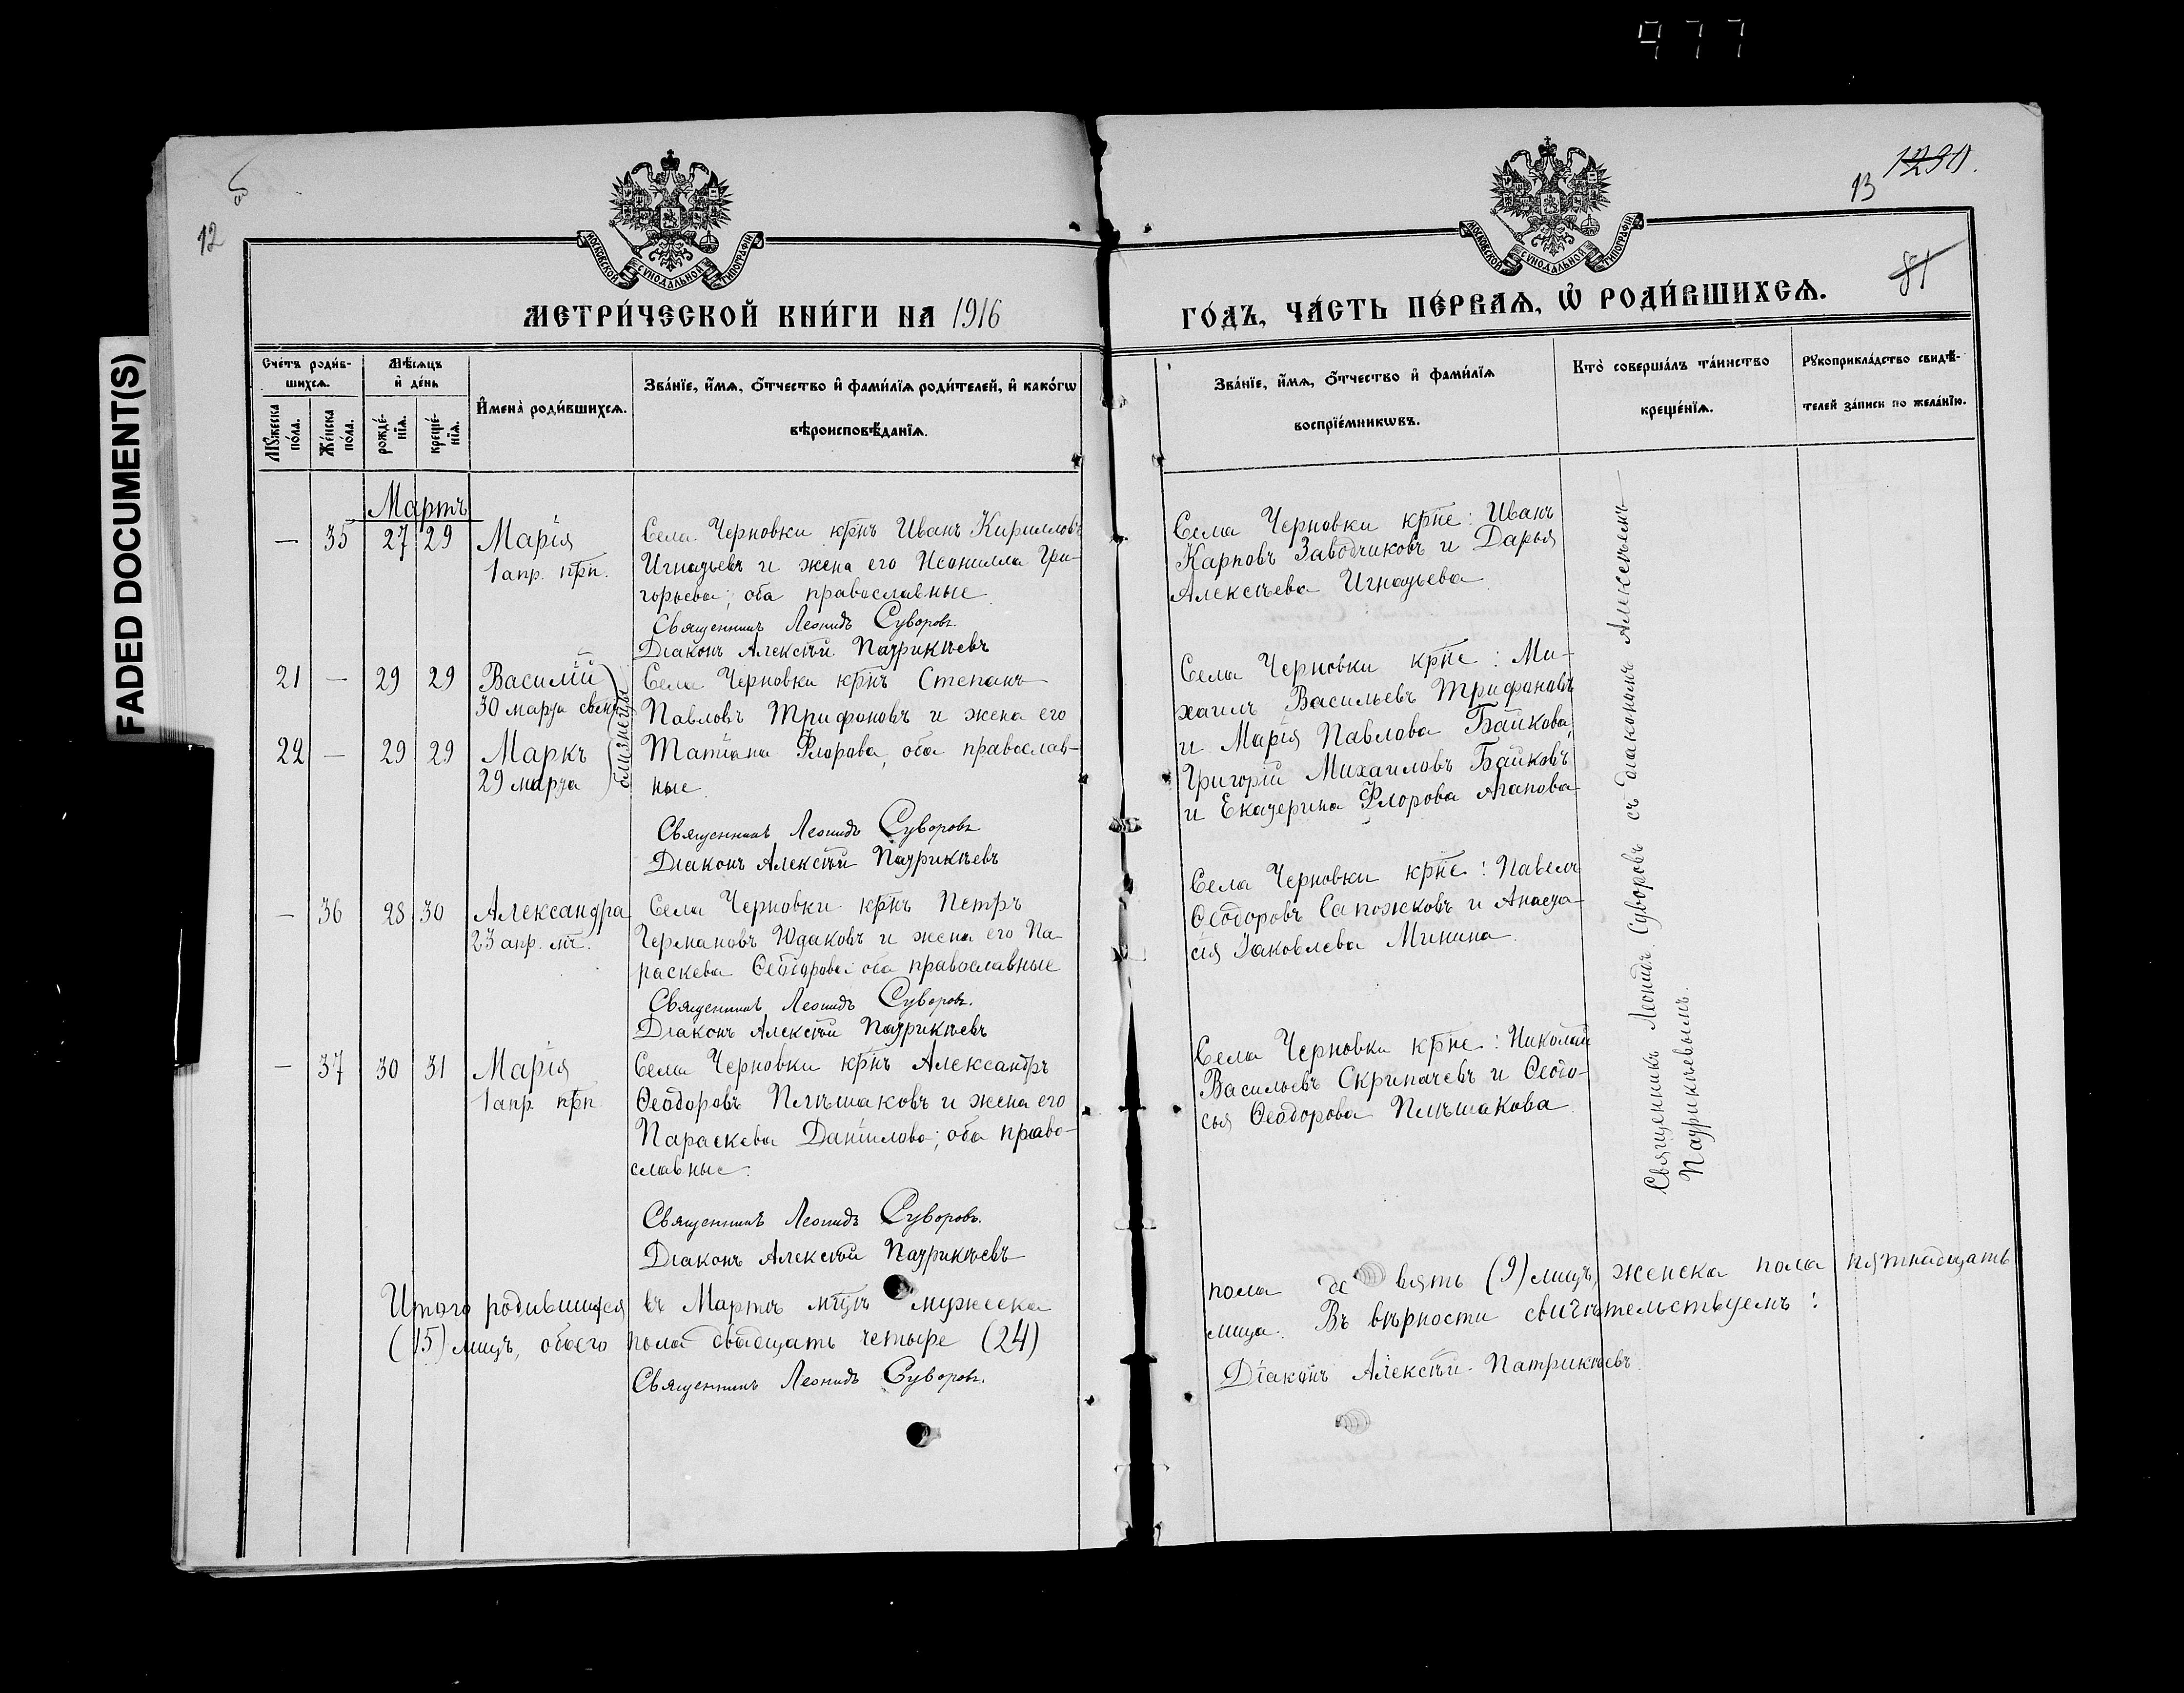 977
FADED DOCUMENT(S)
12
13
1290.
81
МОСКОВСКОЙ СУНОДАЛЬНОЙ ТИПОГРАФІИ
МОСКОВСКОЙ СУНОДАЛЬНОЙ ТИПОГРАФІИ
МЕТРИ́ЧЕСКОЙ КНИ́ГИ НА 1916
ГО́ДЪ, ЧА́СТЬ ПЕ́РВАѦ, Ѽ РОДИ́ВШИХСѦ.
Сче́тъ роди́в-
шихсѧ.
Мꙋ́жеска
по́ла.
Же́нска
по́ла.
Мѣ́сѧцъ
и҆ де́нь
рожде́-
нїѧ.
креще́-
нїѧ.
И҆мена̀ роди́вшихсѧ.
Зва́нїе, и҆́мѧ, ѻ҆́тчество и҆ фами́лїѧ роди́телей, и҆ како́гѡ
вѣроисповѣ́данїѧ.
Зва́нїе, и҆́мѧ, ѻ҆́тчество и҆ фами́лїѧ
воспрїе́мникѡвъ.
Кто̀ соверша́лъ та́инство
креще́нїѧ.
Рꙋкоприкла́дство свидѣ́-
телей за́писи по жела́нїю.
Мартъ
— 35 27 29 Марія
1 апр. прп.
Села Черновки крнъ Иванъ Кирилловъ
Игнатьевъ и жена его Неонилла Гри-
горьева; оба православные
Священникъ Леонидъ Суворовъ.
Діаконъ Алексѣй Патрикѣевъ
Села Черновки крне: Иванъ
Карповъ Заводчиковъ и Дарья
Алексѣева Игнатьева
21 — 29 29 Василій
30 марта свщн.
22 — 29 29 Маркъ
29 марта
близнецы
Села Черновки крнъ Степанъ
Павловъ Трифоновъ и жена его
Татіана Флорова, оба православ-
ные.
Священникъ Леонидъ Суворовъ
Діаконъ Алексѣй Патрикѣевъ
Села Черновки крне: Ми-
хаилъ Васильевъ Трифоновъ
и Марія Павлова Байкова,
Григорій Михаиловъ Байковъ
и Екатерина Флорова Агапова
— 36 28 30 Александра
23 апр. мч.
Села Черновки крнъ Петръ
Германовъ Юдаковъ и жена его Па-
раскева Ѳеодорова оба православные
Священникъ Леонидъ Суворовъ.
Діаконъ Алексѣй Патрикѣевъ
Села Черновки крне: Павелъ
Ѳеодоровъ Сапожковъ и Анаста-
сія Іаковлева Минина.
— 37 30 31 Марія
1 апр прп
Села Черновки крнъ Александръ
Ѳеодоровъ Плѣшаковъ и жена его
Параскева Даніилова; оба право-
славные.
Священникъ Леонидъ Суворовъ.
Діаконъ Алексѣй Патрикѣевъ
Села Черновки крне: Николай
Васильевъ Скрипачевъ и Ѳеодо-
сья Ѳеодорова Плѣшакова.
Священникъ Леонидъ Суворовъ съ діакономъ Алексѣемъ
Патрикѣевымъ.
Итого родившихся въ Мартѣ мцѣ мужеска
пола девять (9) лицъ, женска пола пятнадцать
(15) лицъ, обоего пола двадцать четыре (24)
лица. Въ вѣрности свидѣтельствуемъ:
Священникъ Леонидъ Суворовъ.
Діаконъ Алексѣй Патрикѣевъ